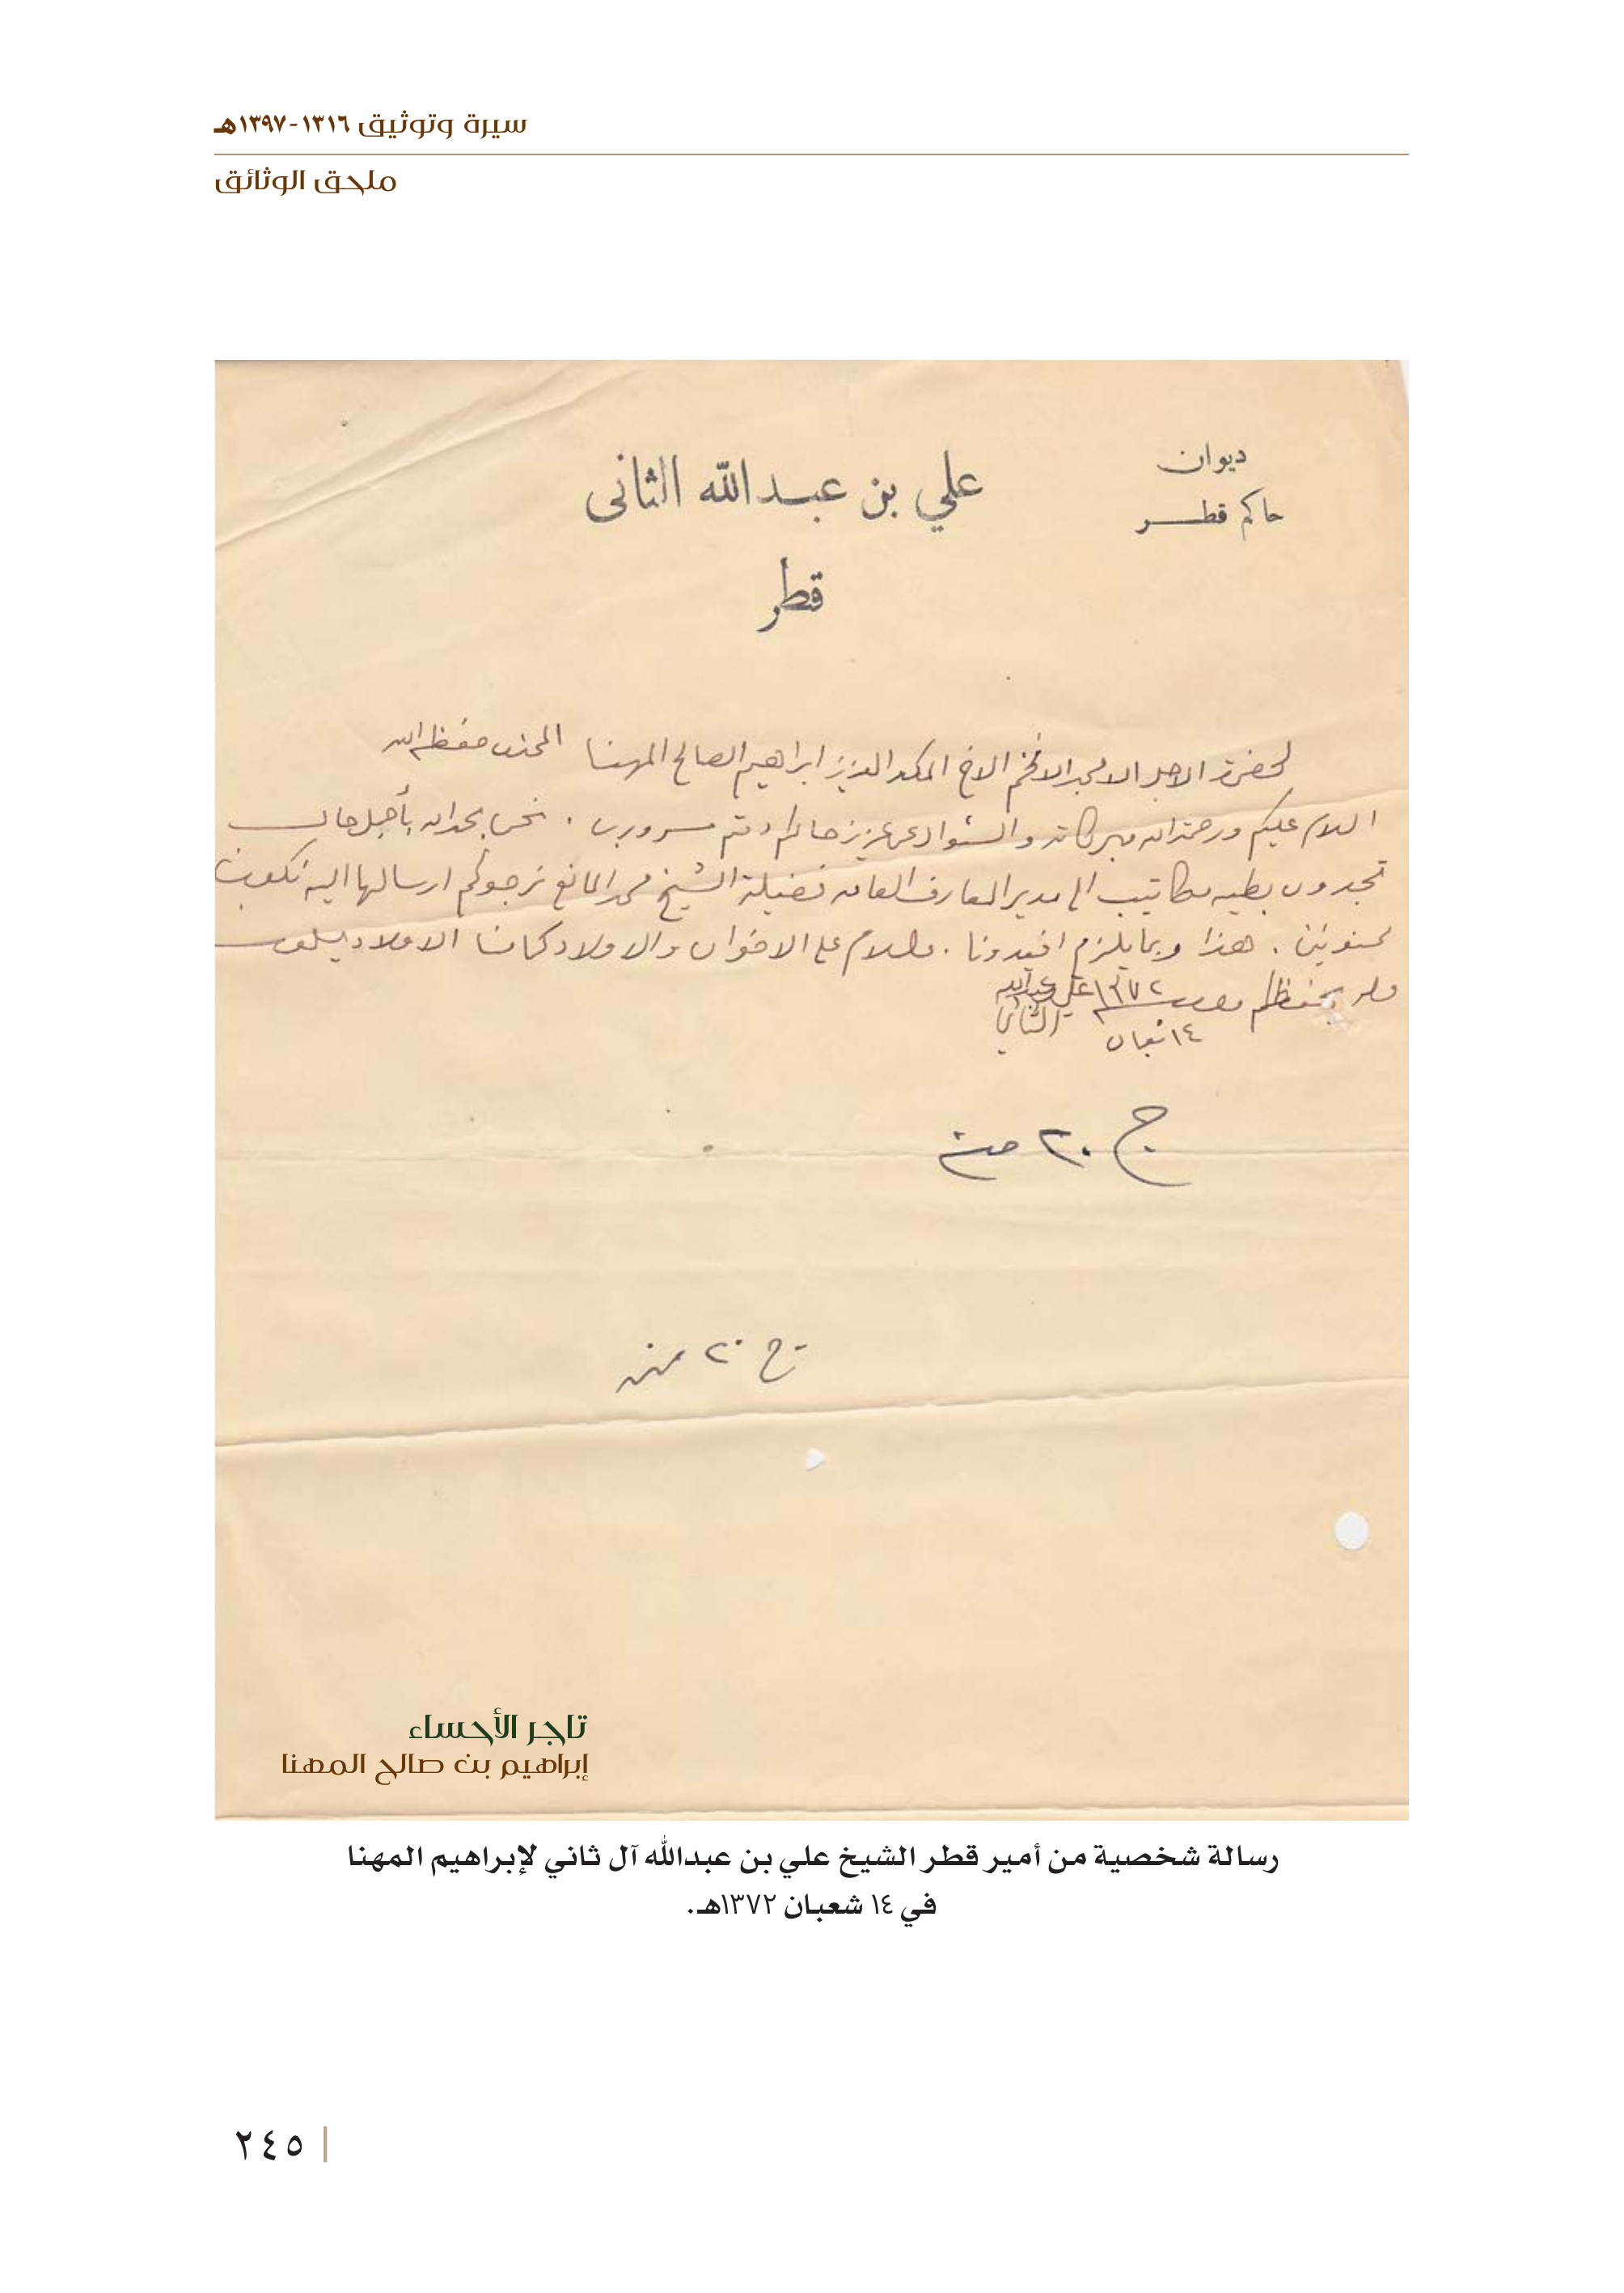 سيرة وتوثيق ١٣١٦-١٣٩٧هـ
ملحق الوثائق
ديوان
حاكم قطر
علي بن عبد الله الثاني
قطر
لحضرة الاجل الامجد الافخم الاخ المكرم العزيز ابراهيم الصالح المهنا المحترم حفظه الله
السلام عليكم ورحمة الله وبركاته والسؤال عن عزيز خاطركم دمتم مسرورين . نحن بحمد الله بأجمل حال
تجدون بطيه مكاتيب الى مدير المعارف العامه فضيلة الشيخ محمد المانع نرجوكم ارسالها اليه نكون
ممنونين . هذا وبما يلزم افيدونا . والسلام على الاخوان والاولاد كما منا الاولاد يسلمون
والله يحفظكم ١٣٧٢ علي بن عبد الله
١٤ شعبان الثاني
ج ٢٠ منه
ج ٢٠ منه
تاجر الأحساء
إبراهيم بن صالح المهنا
رسالة شخصية من أمير قطر الشيخ علي بن عبدالله آل ثاني لإبراهيم المهنا
في ١٤ شعبان ١٣٧٢هـ.
٢٤٥